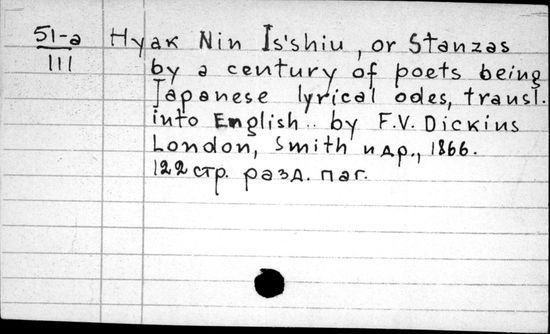 51-a Hyak Nin Is'shiu, or Stanzas
111 by a century of poets being
Japanese lyrical odes, transl.
into English .. by F.V. Dickins
London, Smith и др., 1866.
122 стр. разд. паг.